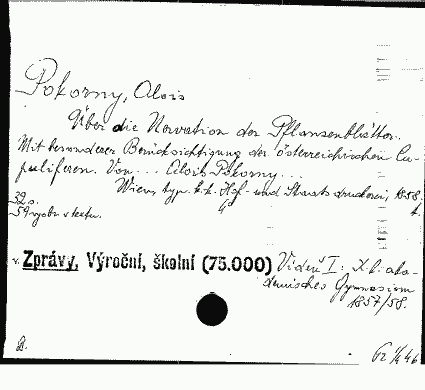 Pokorny, Alois
Über die Nervation der Pflanzenblätter.
Mit besonderer Berücksichtigung der österreichischen Cu-
puliferen. Von... Alois Pokorny...
Wien, typ. k. k. Hof- und Staatsdruckerei, 1858.
32 s. 4.
59 vyobr. v textu.
v. Zprávy, Výroční, školní (75.000) Vídeň I: K. k. aka-
demisches Gymnasium
1857/58.